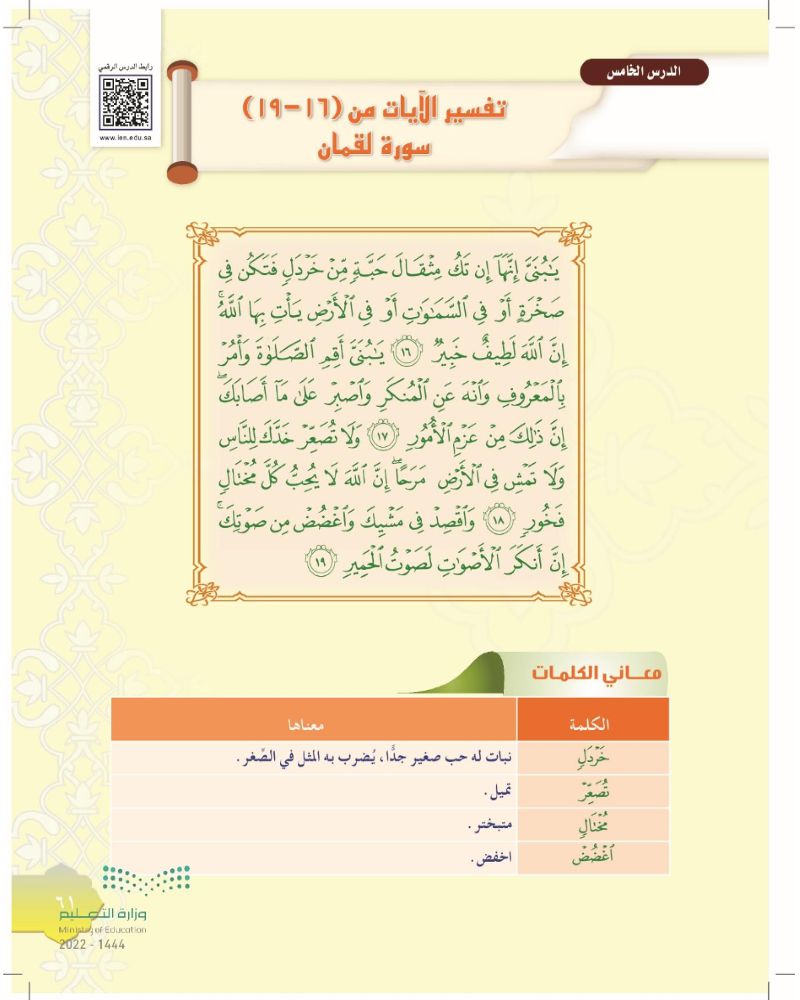 رابط الدرس الرقمي
www.ien.edu.sa
الدرس الخامس
تفسير الآيات من (١٦-١٩)
سورة لقمان
يَٰبُنَيَّ إِنَّهَآ إِن تَكُ مِثۡقَالَ حَبَّةٖ مِّنۡ خَرۡدَلٖ فَتَكُن فِي
صَخۡرَةٍ أَوۡ فِي ٱلسَّمَٰوَٰتِ أَوۡ فِي ٱلۡأَرۡضِ يَأۡتِ بِهَا ٱللَّهُۚ
إِنَّ ٱللَّهَ لَطِيفٌ خَبِيرٞ ١٦ يَٰبُنَيَّ أَقِمِ ٱلصَّلَوٰةَ وَأۡمُرۡ
بِٱلۡمَعۡرُوفِ وَٱنۡهَ عَنِ ٱلۡمُنكَرِ وَٱصۡبِرۡ عَلَىٰ مَآ أَصَابَكَۖ
إِنَّ ذَٰلِكَ مِنۡ عَزۡمِ ٱلۡأُمُورِ ١٧ وَلَا تُصَعِّرۡ خَدَّكَ لِلنَّاسِ
وَلَا تَمۡشِ فِي ٱلۡأَرۡضِ مَرَحًاۖ إِنَّ ٱللَّهَ لَا يُحِبُّ كُلَّ مُخۡتَالٖ
فَخُورٖ ١٨ وَٱقۡصِدۡ فِي مَشۡيِكَ وَٱغۡضُضۡ مِن صَوۡتِكَۚ
إِنَّ أَنكَرَ ٱلۡأَصۡوَٰتِ لَصَوۡتُ ٱلۡحَمِيرِ ١٩
معـــاني الكلمـات
الكلمة معناها
خَرۡدَلٖ نبات له حب صغير جدًّا، يُضرب به المثل في الصِّغر.
تُصَعِّرۡ تميل.
مُخۡتَالٖ متبختر.
ٱغۡضُضۡ اخفض.
٦١
وزارة التعـــليم
Ministry of Education
2022 - 1444